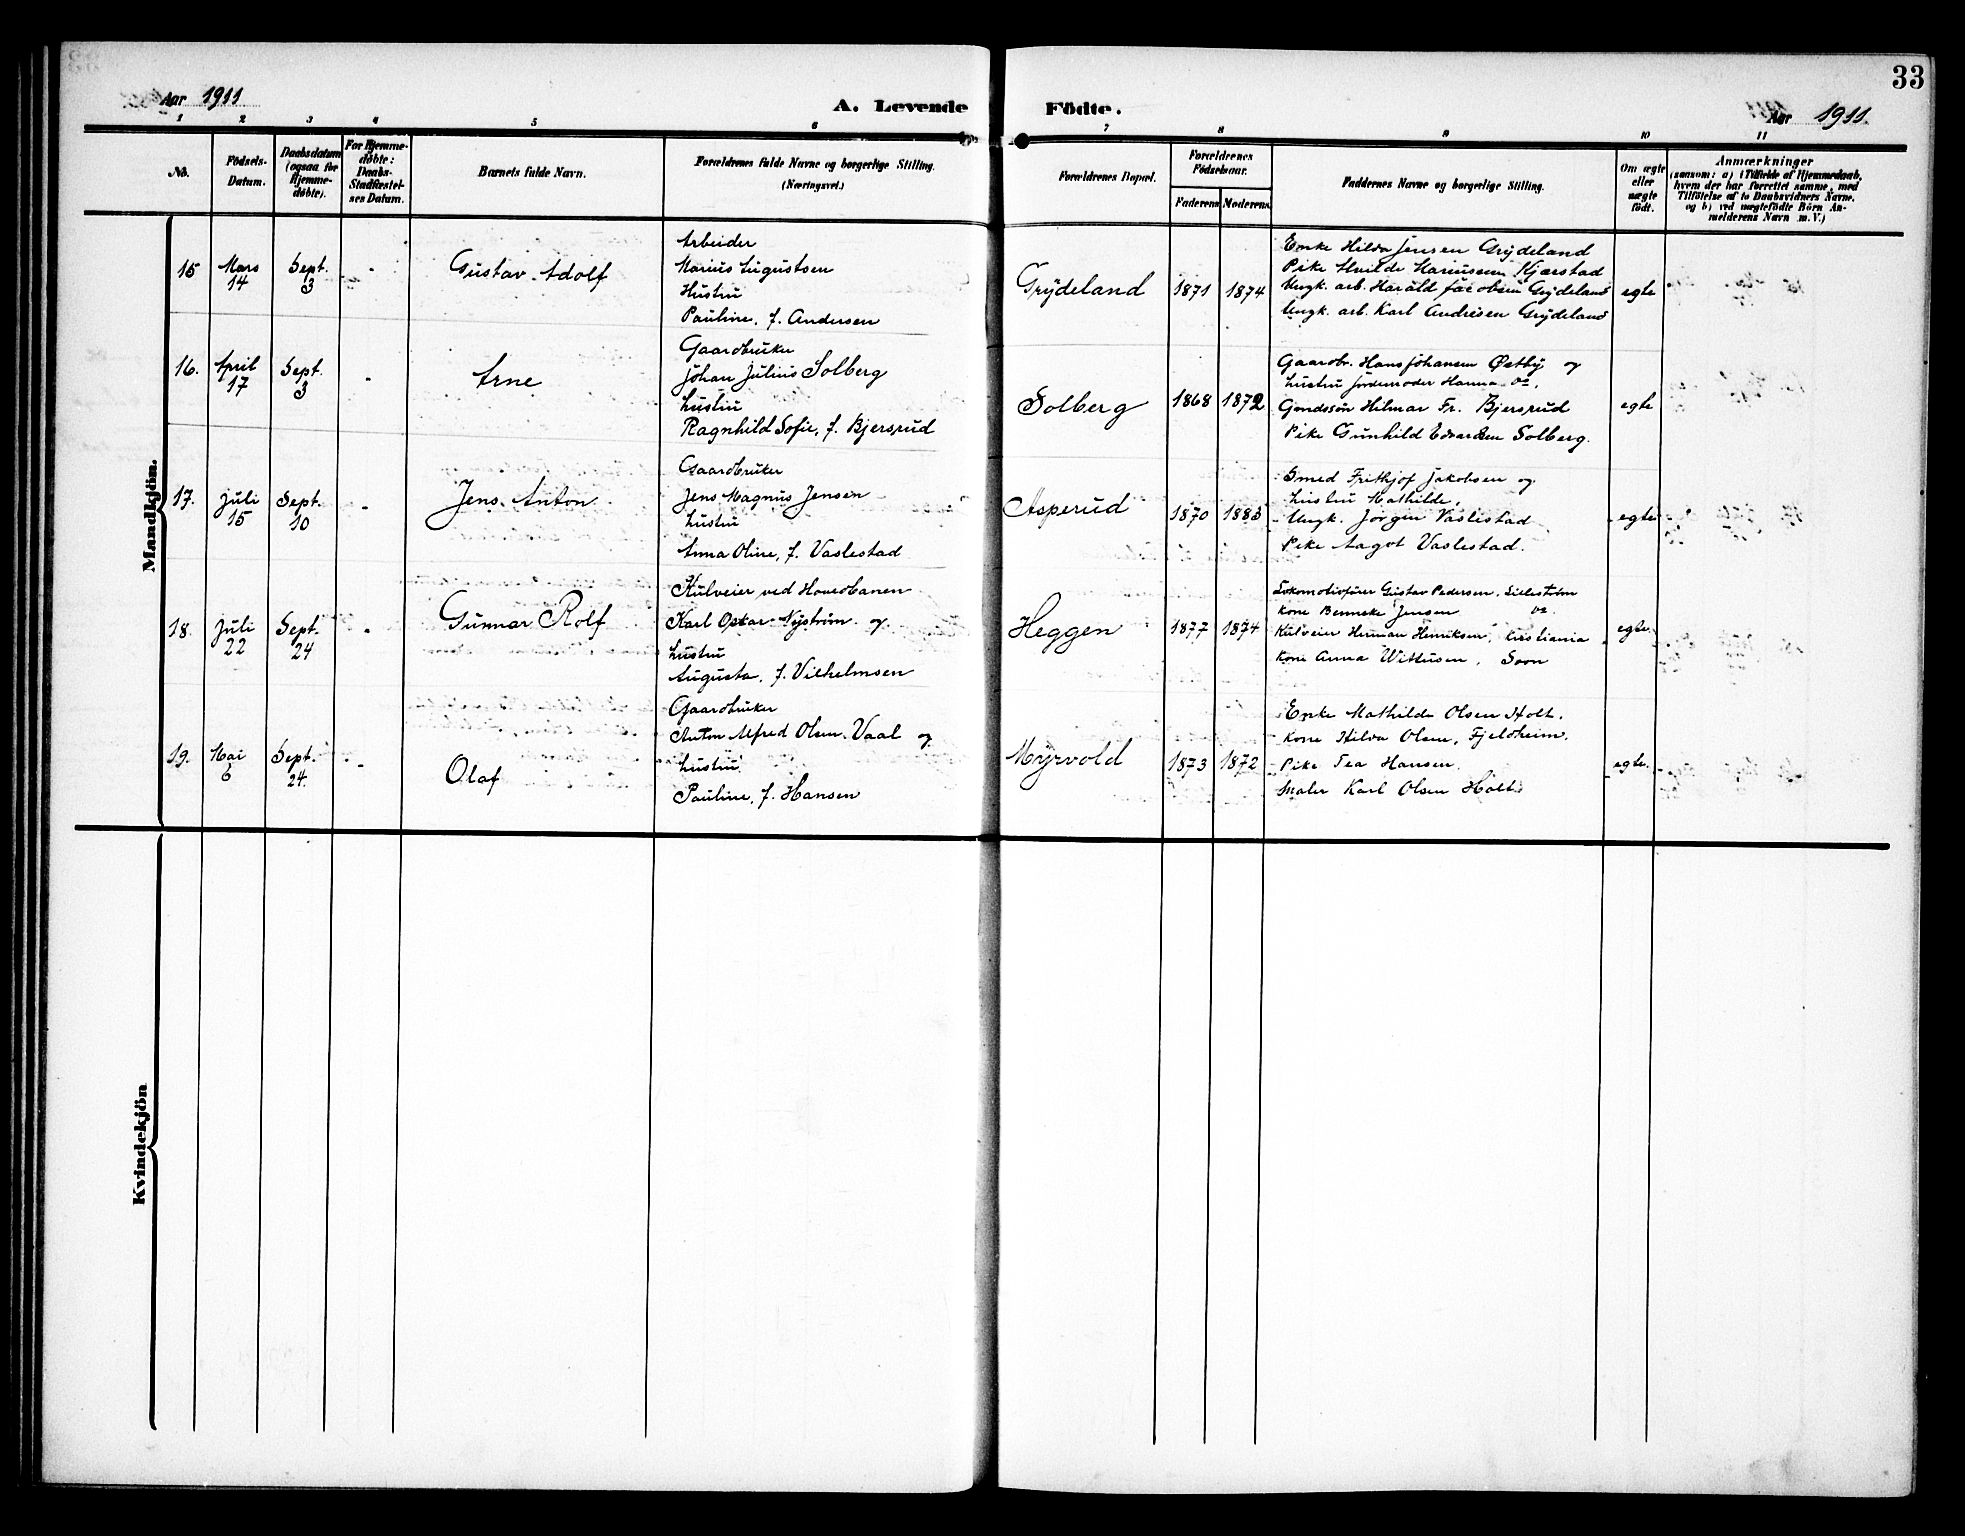 33
Aar 1911
A. Levende
Födte.
Aar 1911.
1 2 3 4 5 6 7 8 9 10 11
No.
Födsels-
Datum.
Daabsdatum
(ogsaa for
Hjemme-
døbte).
For Hjemme-
døbte:
Daabs-
Stadfæstel-
ses Datum.
Barnets fulde Navn.
Forældrenes fulde Navne og borgerlige Stilling.
(Næringsvei.)
Forældrenes Bopæl.
Forældrenes
Fødselsaar.
Faderens
Moderens
Faddernes Navne og borgerlige Stilling.
Om ægte
eller
uægte
født.
Anmærkninger
(saasom: a) i Tilfælde af Hjemmedaab,
hvem der har forrettet samme, med
Tilföielse af to Daabsvidners Navne,
og b) ved uægtefödte Börn An-
melderens Navn m. V.)
Mandkjön.
15
Mars
14
Sept.
3
Gustav Adolf
Arbeider
Marius Augustsen
Hustru
Pauline, f. Andersen
Grydeland
1871
1874
Enke Hilda Jensen Grydeland
Pike Hulde Mariussen Kjærstad
Ungk. arb. Harald Jacobsen Grydeland
Ungk. arb. Karl Andresen Grydeland
egte
16.
April
17
Sept.
3
Arne
Gaardbruker
Johan Julius Solberg
hustru
Ragnhild Sofie, f. Bjersrud
Solberg
1868
1872
Gaardbr. Hans Johansen Østby og
hustru jordemoder Hanna Do.
Hilmar Fr. Bjersrud
Pike Gunhild Edvardsen Solberg.
egte
17.
Juli
15
Sept.
10
Jens Anton
Gaardbruker
Jens Magnus Jensen
hustru
Anna Oline, f. Vaslestad
Asperud
1870
1883
Smed Frithjof Jakobsen og
hustru Mathilde,
Ungk. Jørgen Vaslestad
Pike Aagot Vaslestad.
egte
18.
Juli
22
Sept.
24
Gunnar Rolf
Kulveier ved Hovedbanen
Karl Oskar Nystrøm og
hustru
Augusta, f. Vilhelmsen
Heggen
1877
1874
Lokomotivfører Gustav Pedersen, Lillestrøm
Kone Jensen Do.
Kulveier Herman Henriksen, Kristiania
Kone Anna Wittusen, Soon
egte
19.
Mai
6
Sept.
24.
Olaf
Gaardbruker
Anton Alfred Olsen Vaal og
hustru
Pauline, f. Hansen
Myrvold
1873
1872
Enke Mathilde Olsen Holt.
Kone Hilda Olsen, Fjeldheim.
Pike Tea Hansen.
Maler Karl Olsen Holt.
egte.
Kvindekjön